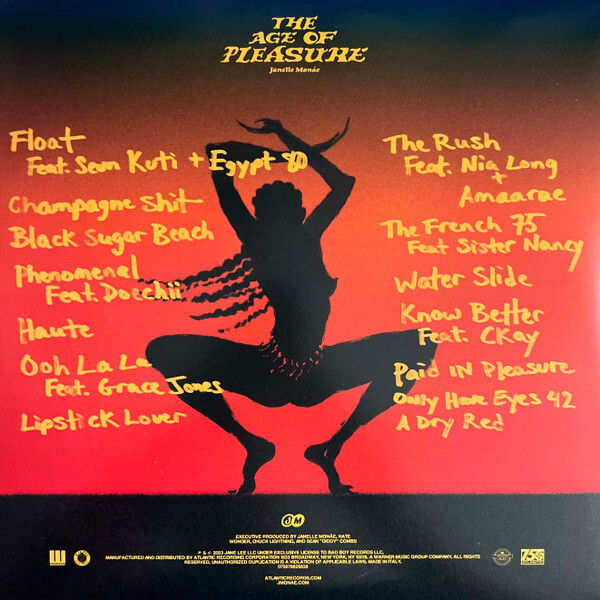 THE
AGE OF
PLEASURE
Janelle Monáe
Float
Feat. Seun Kuti + Egypt 80
Champagne Shit
Black Sugar Beach
Phenomenal
Feat. Doechii
Haute
Ooh La La
Feat. Grace Jones
Lipstick Lover
The Rush
Feat. Nia Long
+
Amaarae
The French 75
Feat Sister Nancy
Water Slide
Know Better
Feat. CKay
Paid IN Pleasure
Only Have Eyes 42
A Dry Red
JM
EXECUTIVE PRODUCED BY JANELLE MONÁE, NATE
WONDER, CHUCK LIGHTNING, AND SEAN "DIDDY" COMBS
℗ & © 2023 JANE LEE LLC UNDER EXCLUSIVE LICENSE TO BAD BOY RECORDS LLC,
MANUFACTURED AND DISTRIBUTED BY ATLANTIC RECORDING CORPORATION 1633 BROADWAY, NEW YORK, NY 10019. A WARNER MUSIC GROUP COMPANY. ALL RIGHTS
RESERVED. UNAUTHORIZED DUPLICATION IS A VIOLATION OF APPLICABLE LAWS. MADE IN ITALY.
075678625828
ATLANTICRECORDS.COM
JMONAE.COM
ATLANTIC